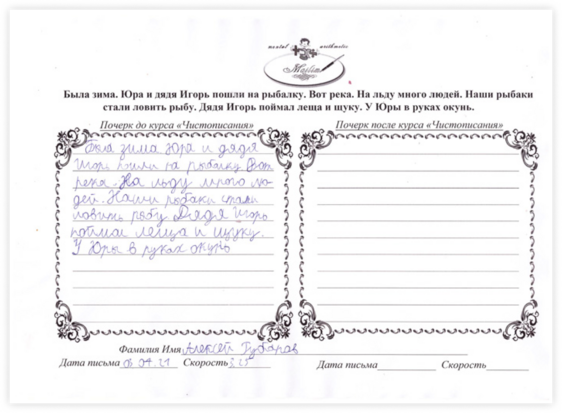 mental arithmetic
Была зима. Юра и дядя Игорь пошли на рыбалку. Вот река. На льду много людей. Наши рыбаки
стали ловить рыбу. Дядя Игорь поймал леща и щуку. У Юры в руках окунь.
Почерк до курса «Чистописания»
Почерк после курса «Чистописания»
Была зима Юра и дядя
Игорь пошли на рыбалку Вот
река. На льду много лю-
дей. Наши рыбаки стали
ловить рыбу Дядя Игорь
поймал леща и щуку.
У Юры в руках окунь
Фамилия Имя Алексей
Дата письма 06.04.21 Скорость
Дата письма Скорость